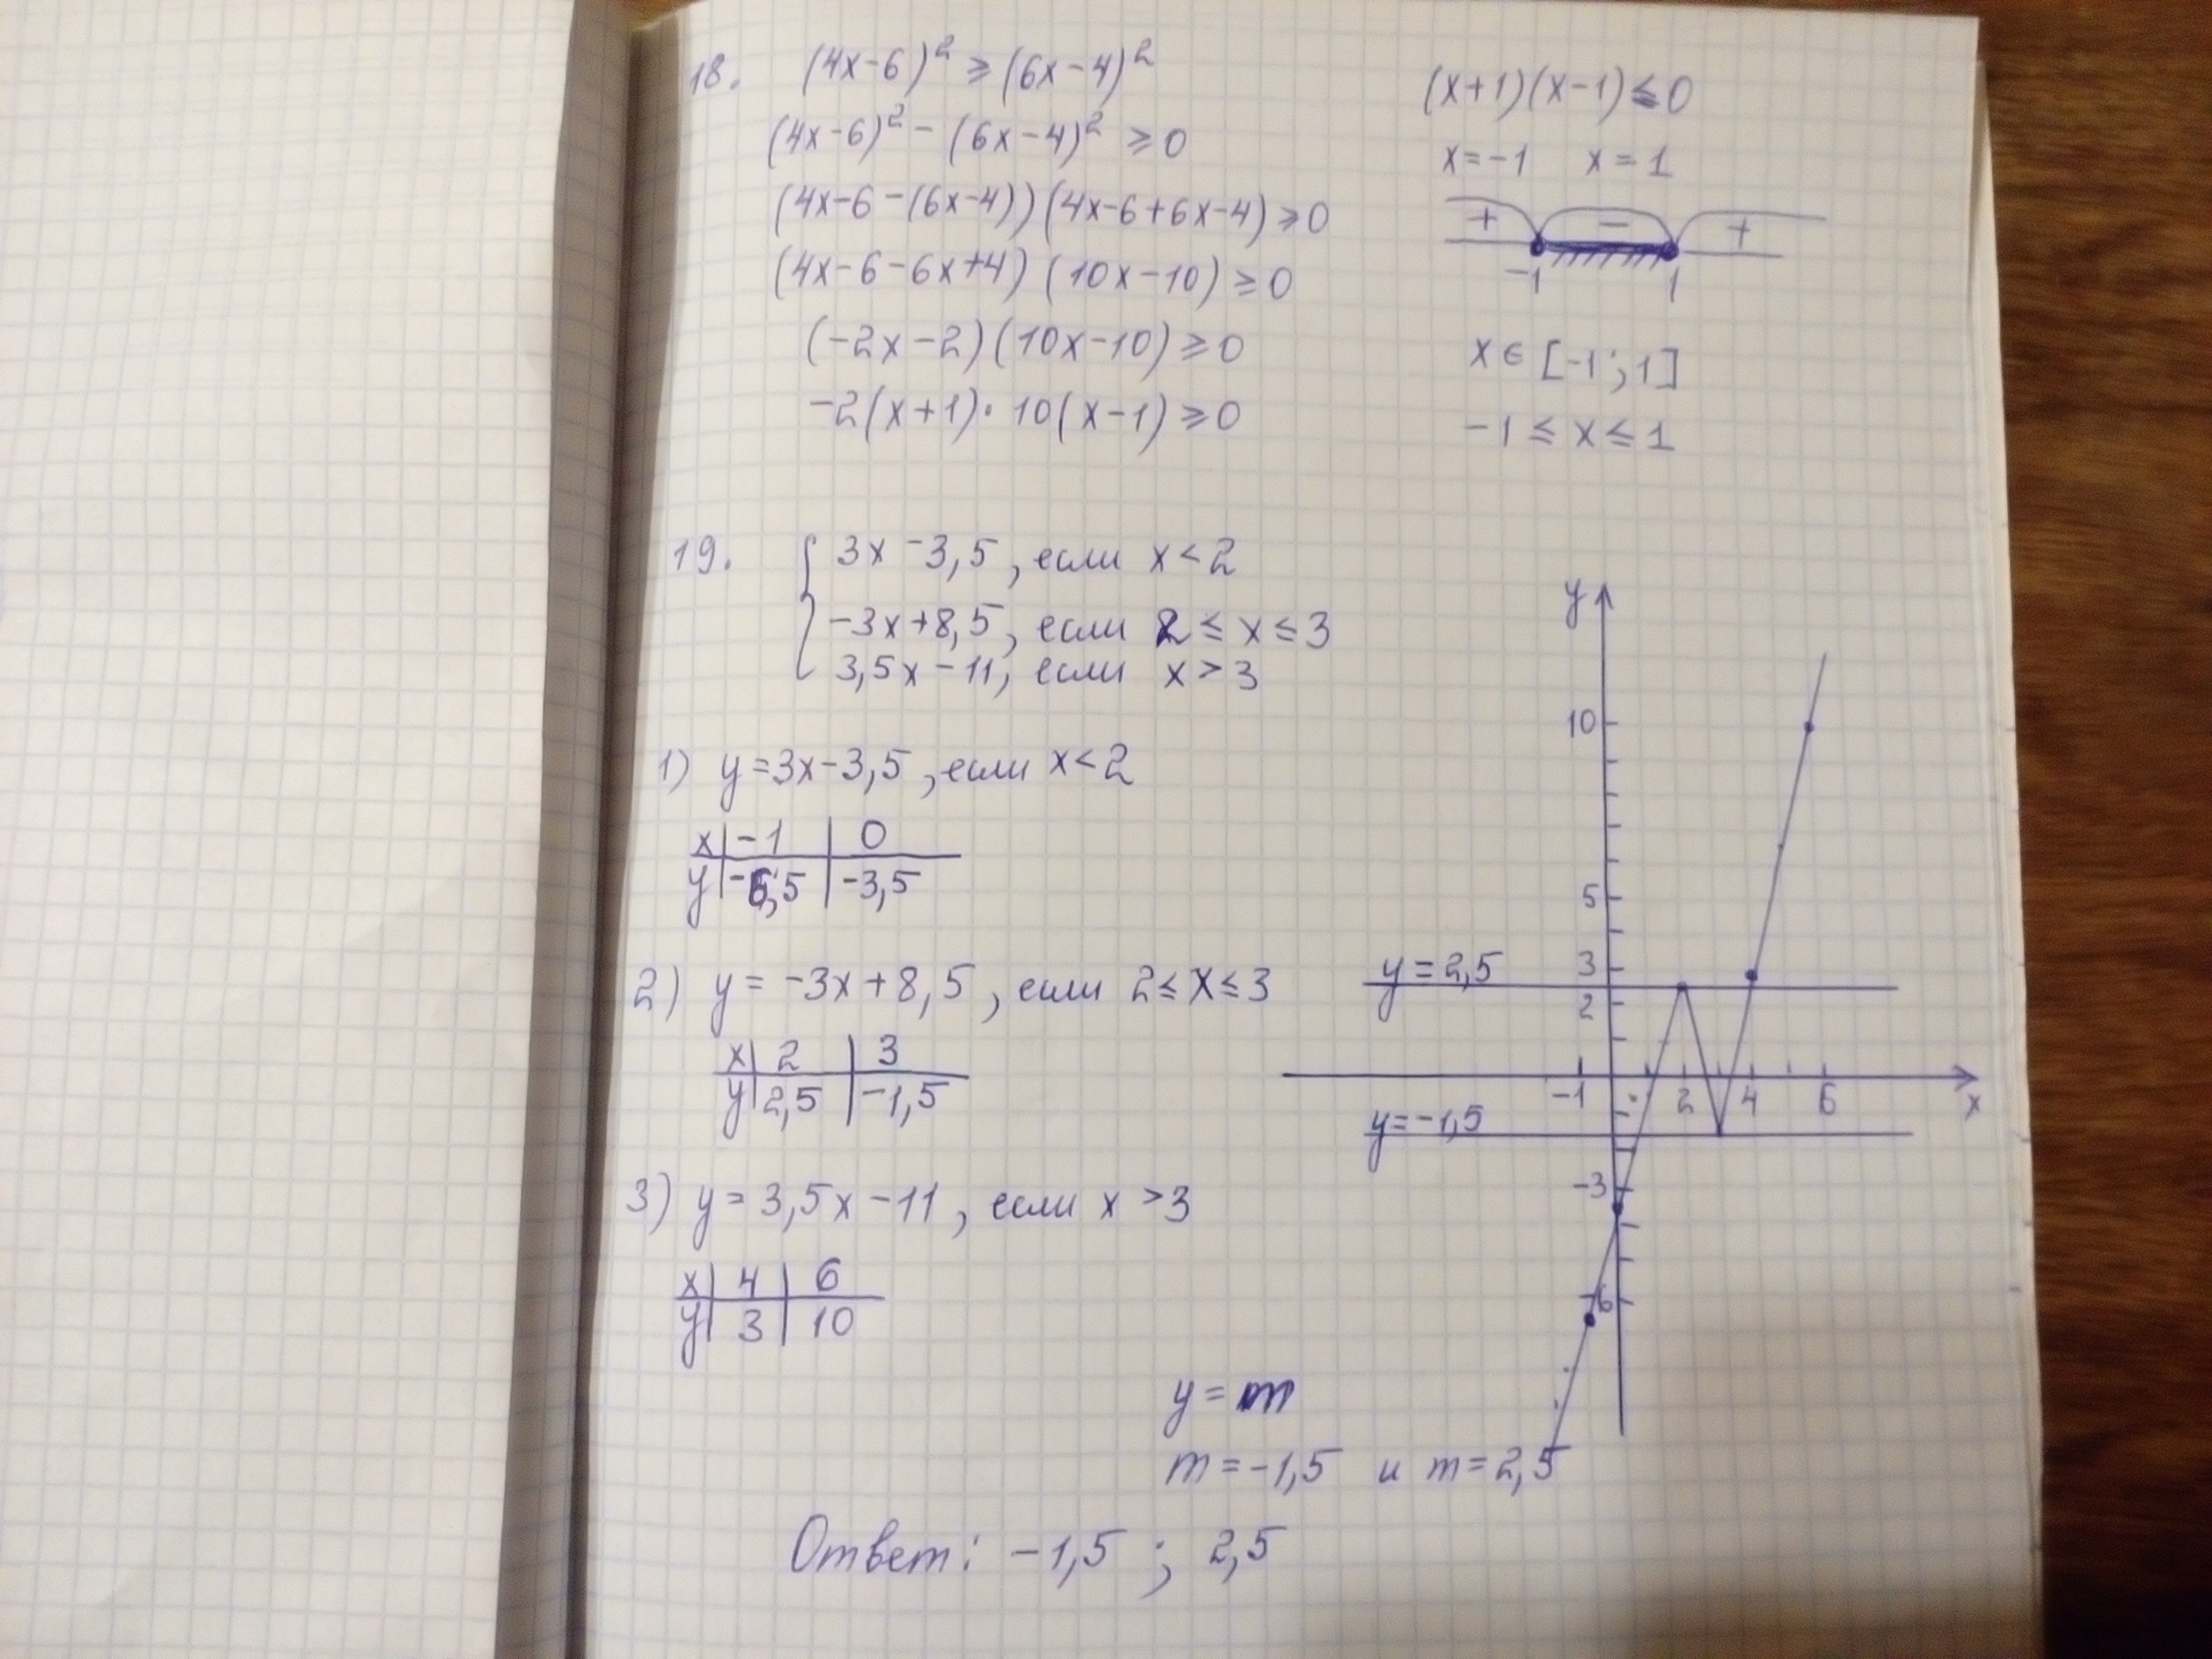 18. (4x-6)² ⩾ (6x-4)²
(4x-6)² - (6x-4)² ⩾ 0
(4x-6-(6x-4))(4x-6+6x-4) ⩾ 0
(4x-6-6x+4) (10x-10) ⩾ 0
(-2x-2)(10x-10) ⩾ 0
-2(x+1)·10(x-1) ⩾ 0
(x+1)(x-1) ⩽ 0
x=-1 x=1
+ - +
-1 1
x ∈ [-1;1]
-1 ⩽ x ⩽ 1
19. { 3x-3,5, если x<2
-3x+8,5, если 2 ⩽ x ⩽ 3
3,5x-11, если x>3
1) y=3x-3,5, если x<2
x | -1 | 0
y | -6,5 | -3,5
2) y = -3x+8,5, если 2⩽x⩽3
x | 2 | 3
y | 2,5 | -1,5
3) y = 3,5x-11, если x >3
x | 4 | 6
y | 3 | 10
y
10
5
y=2,5 3
2
-1 2 4 6 x
y=-1,5
-3
-6
y = m
m=-1,5 и m=2,5
Ответ: -1,5 ; 2,5